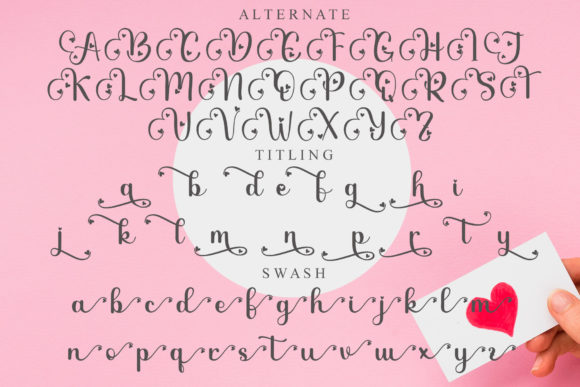 ALTERNATE
A B C D E F G H I J
K L M N O P Q R S T
U V W X Y Z
TITLING
a b d e f g h i
j k l m n p r t y
SWASH
a b c d e f g h i j k l m
n o p q r s t u v w x y z